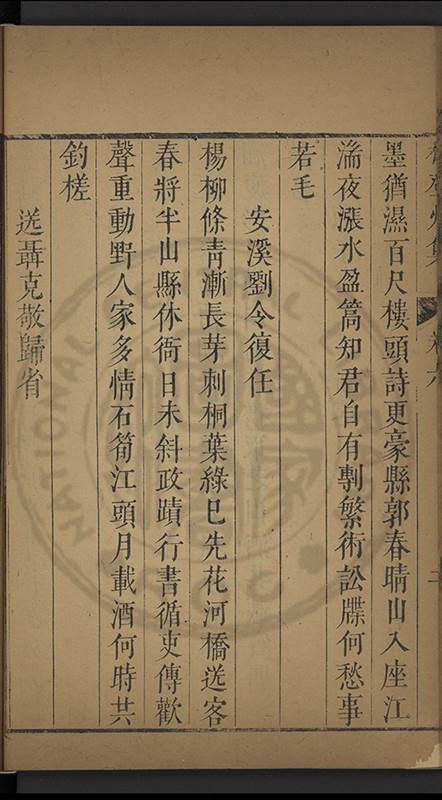 墨猶濕百尺樓頭詩更豪縣郭春晴山入座江
湍夜漲水盈篙知君自有剸繁術訟牒何愁事
若毛
安溪劉令復任
楊柳條青漸長芽刺桐葉綠巳先花河橋送客
春將半山縣休衙日未斜政蹟行書循吏傳歡
聲重動野人家多情石筍江頭月載酒何時共
釣槎
送聶克敬歸省